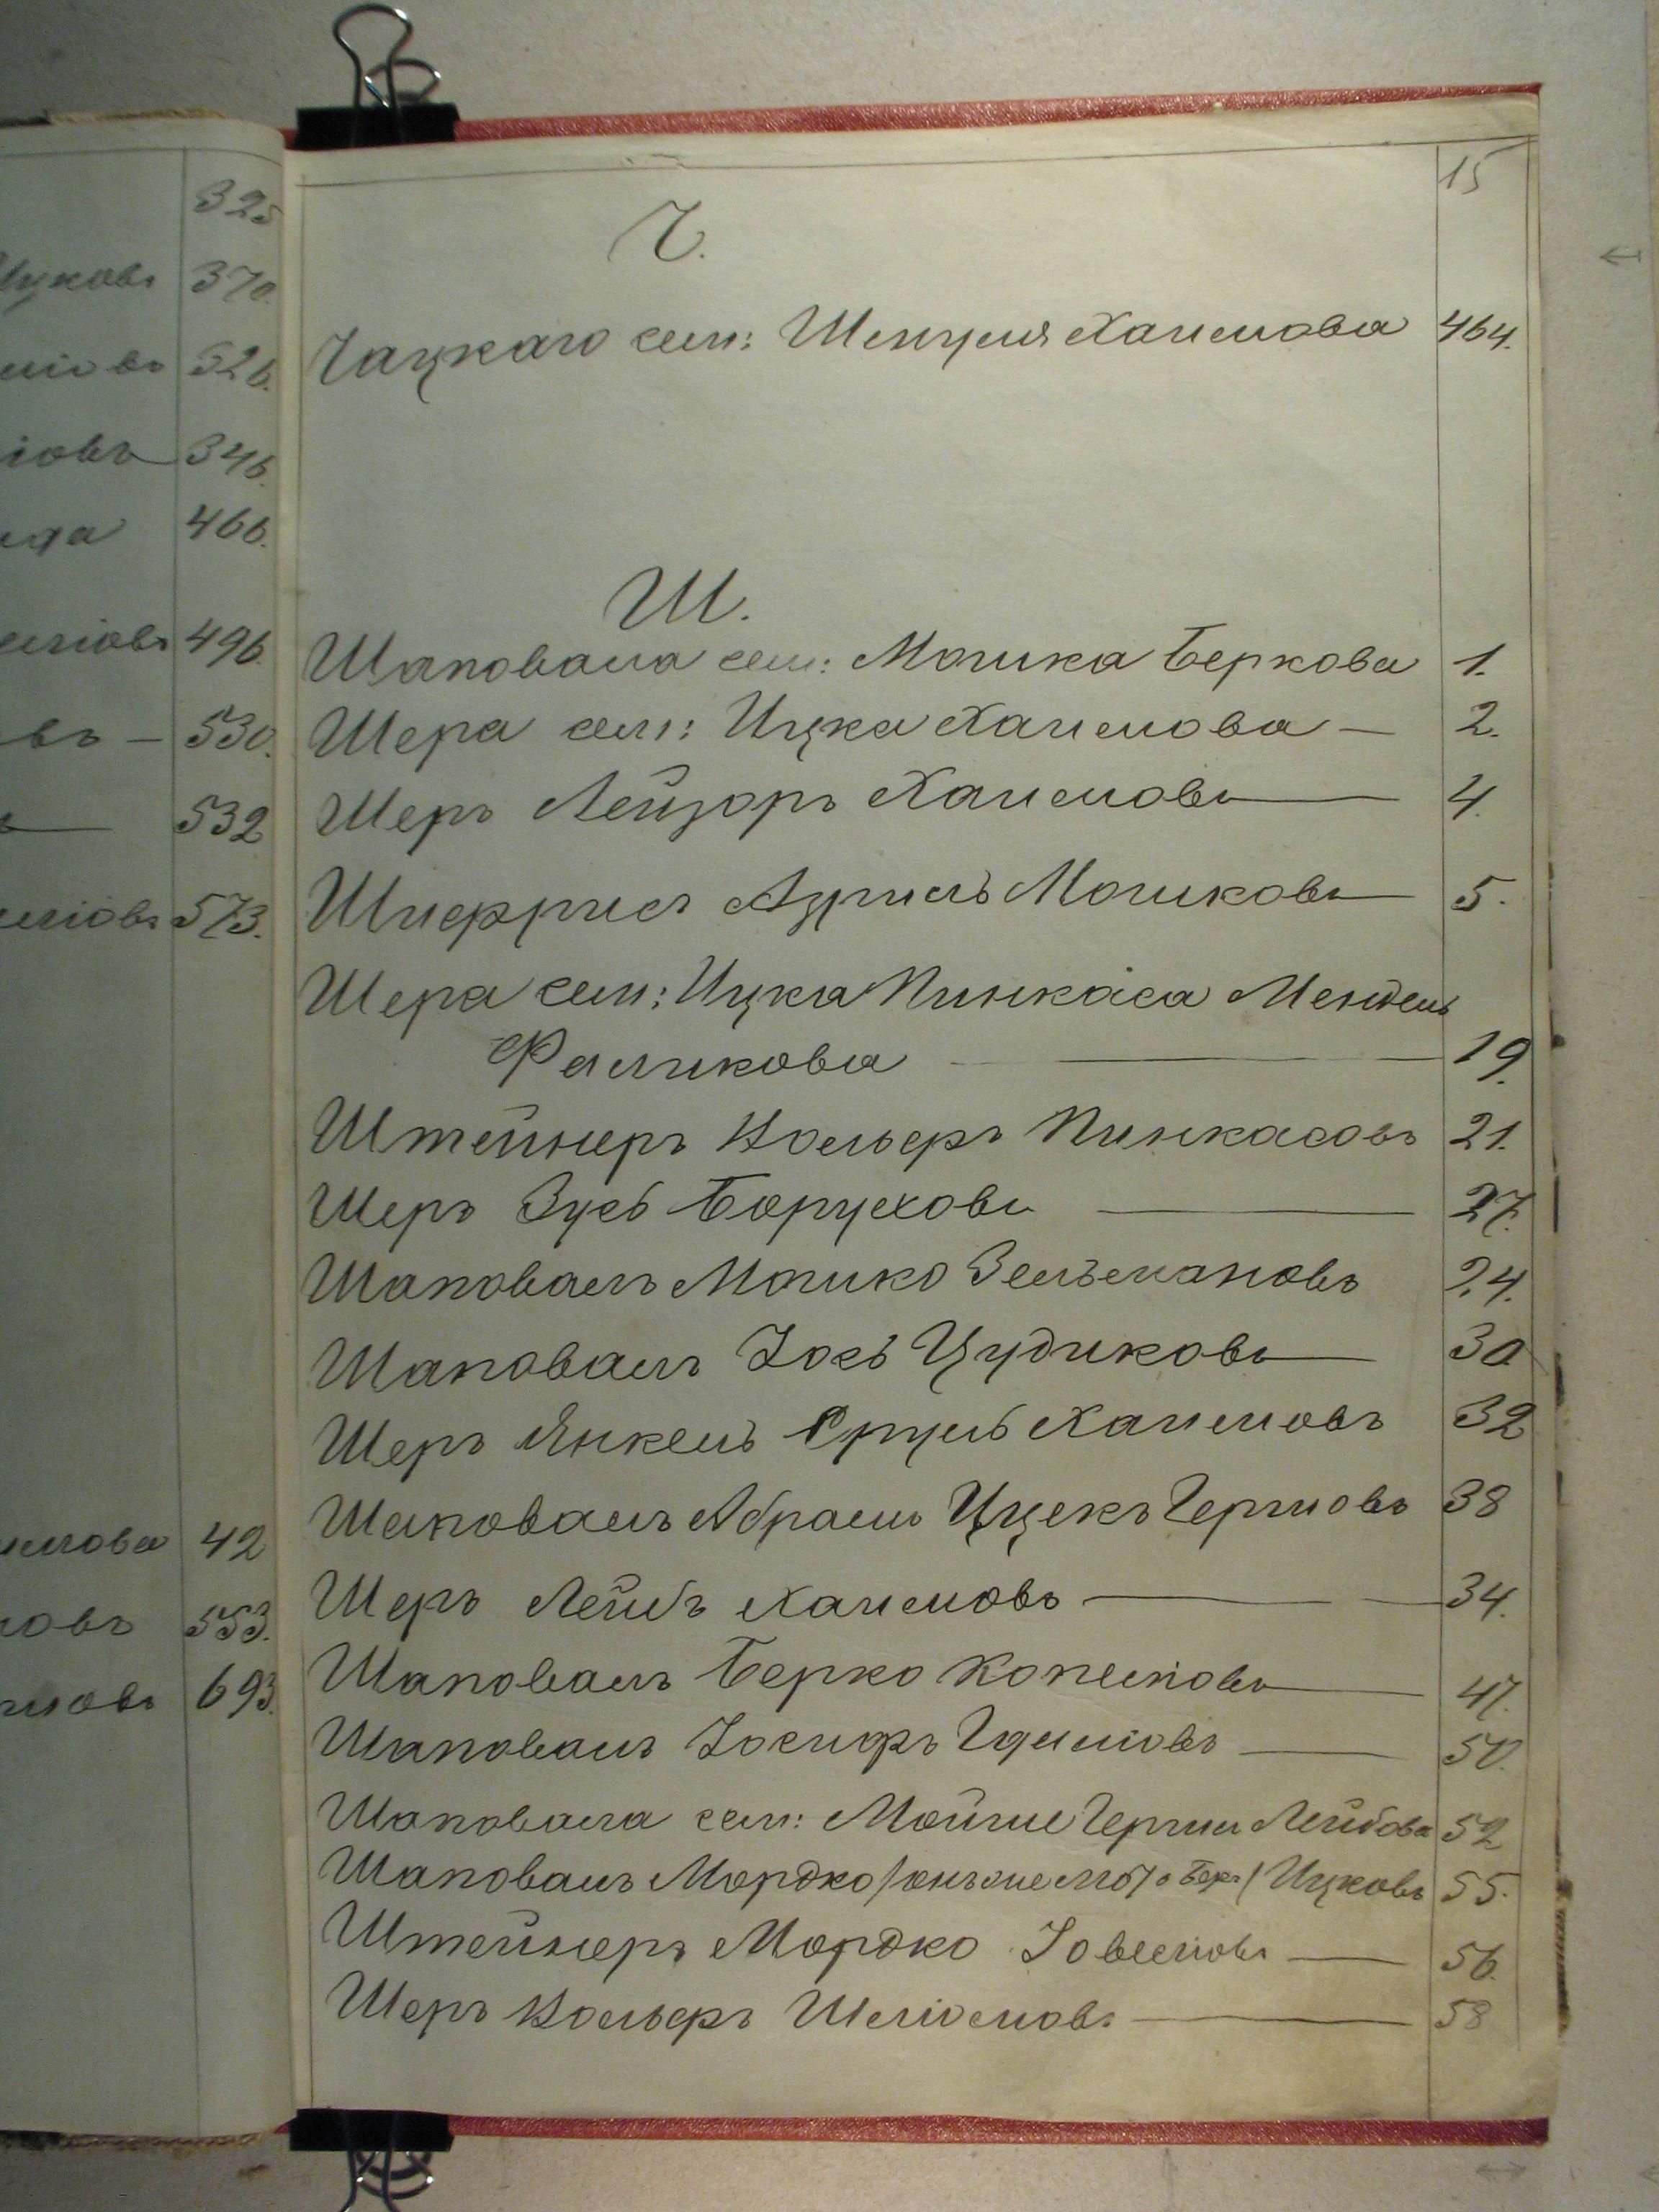 325
370.
526.
346.
466.
496.
530.
532
573.
42
553.
693.
15
Ч.
Чацкаго сем: Шенцеля Хаимова 464.
Ш.
Шаповала сем: Мошка Беркова 1.
Шера сем: Ицка Хаимова — 2.
Шеръ Лейзоръ Хаимовъ — 4.
Шперрисъ Азриль Мошковъ — 5.
Шера сем: Ицка Пинкаса Мендель
Фаликова — 19.
Штейнеръ Вольфъ Пинкасовъ 21.
Шеръ Зусь Боруховъ — 27.
Шаповалъ Мошко Зельмановъ 24.
Шаповалъ Іось Цудиковъ — 30
Шеръ Янкель Сруль Хаимовъ 32
Шаповалъ Абрамъ Ицекъ Гершовъ 38
Шеръ Лейбъ Хаимовъ — 34.
Шаповалъ Берко Копелiовъ — 47.
Шаповалъ Іосифъ Гдалiовъ — 50.
Шаповала сем: Мойше Герши Лейбова 52
Шаповалъ Мордко /онъ же Ицковъ 55.
Штейнеръ Мордко Іовелiовъ — 56.
Шеръ Вольфъ Шлiомовъ — 58